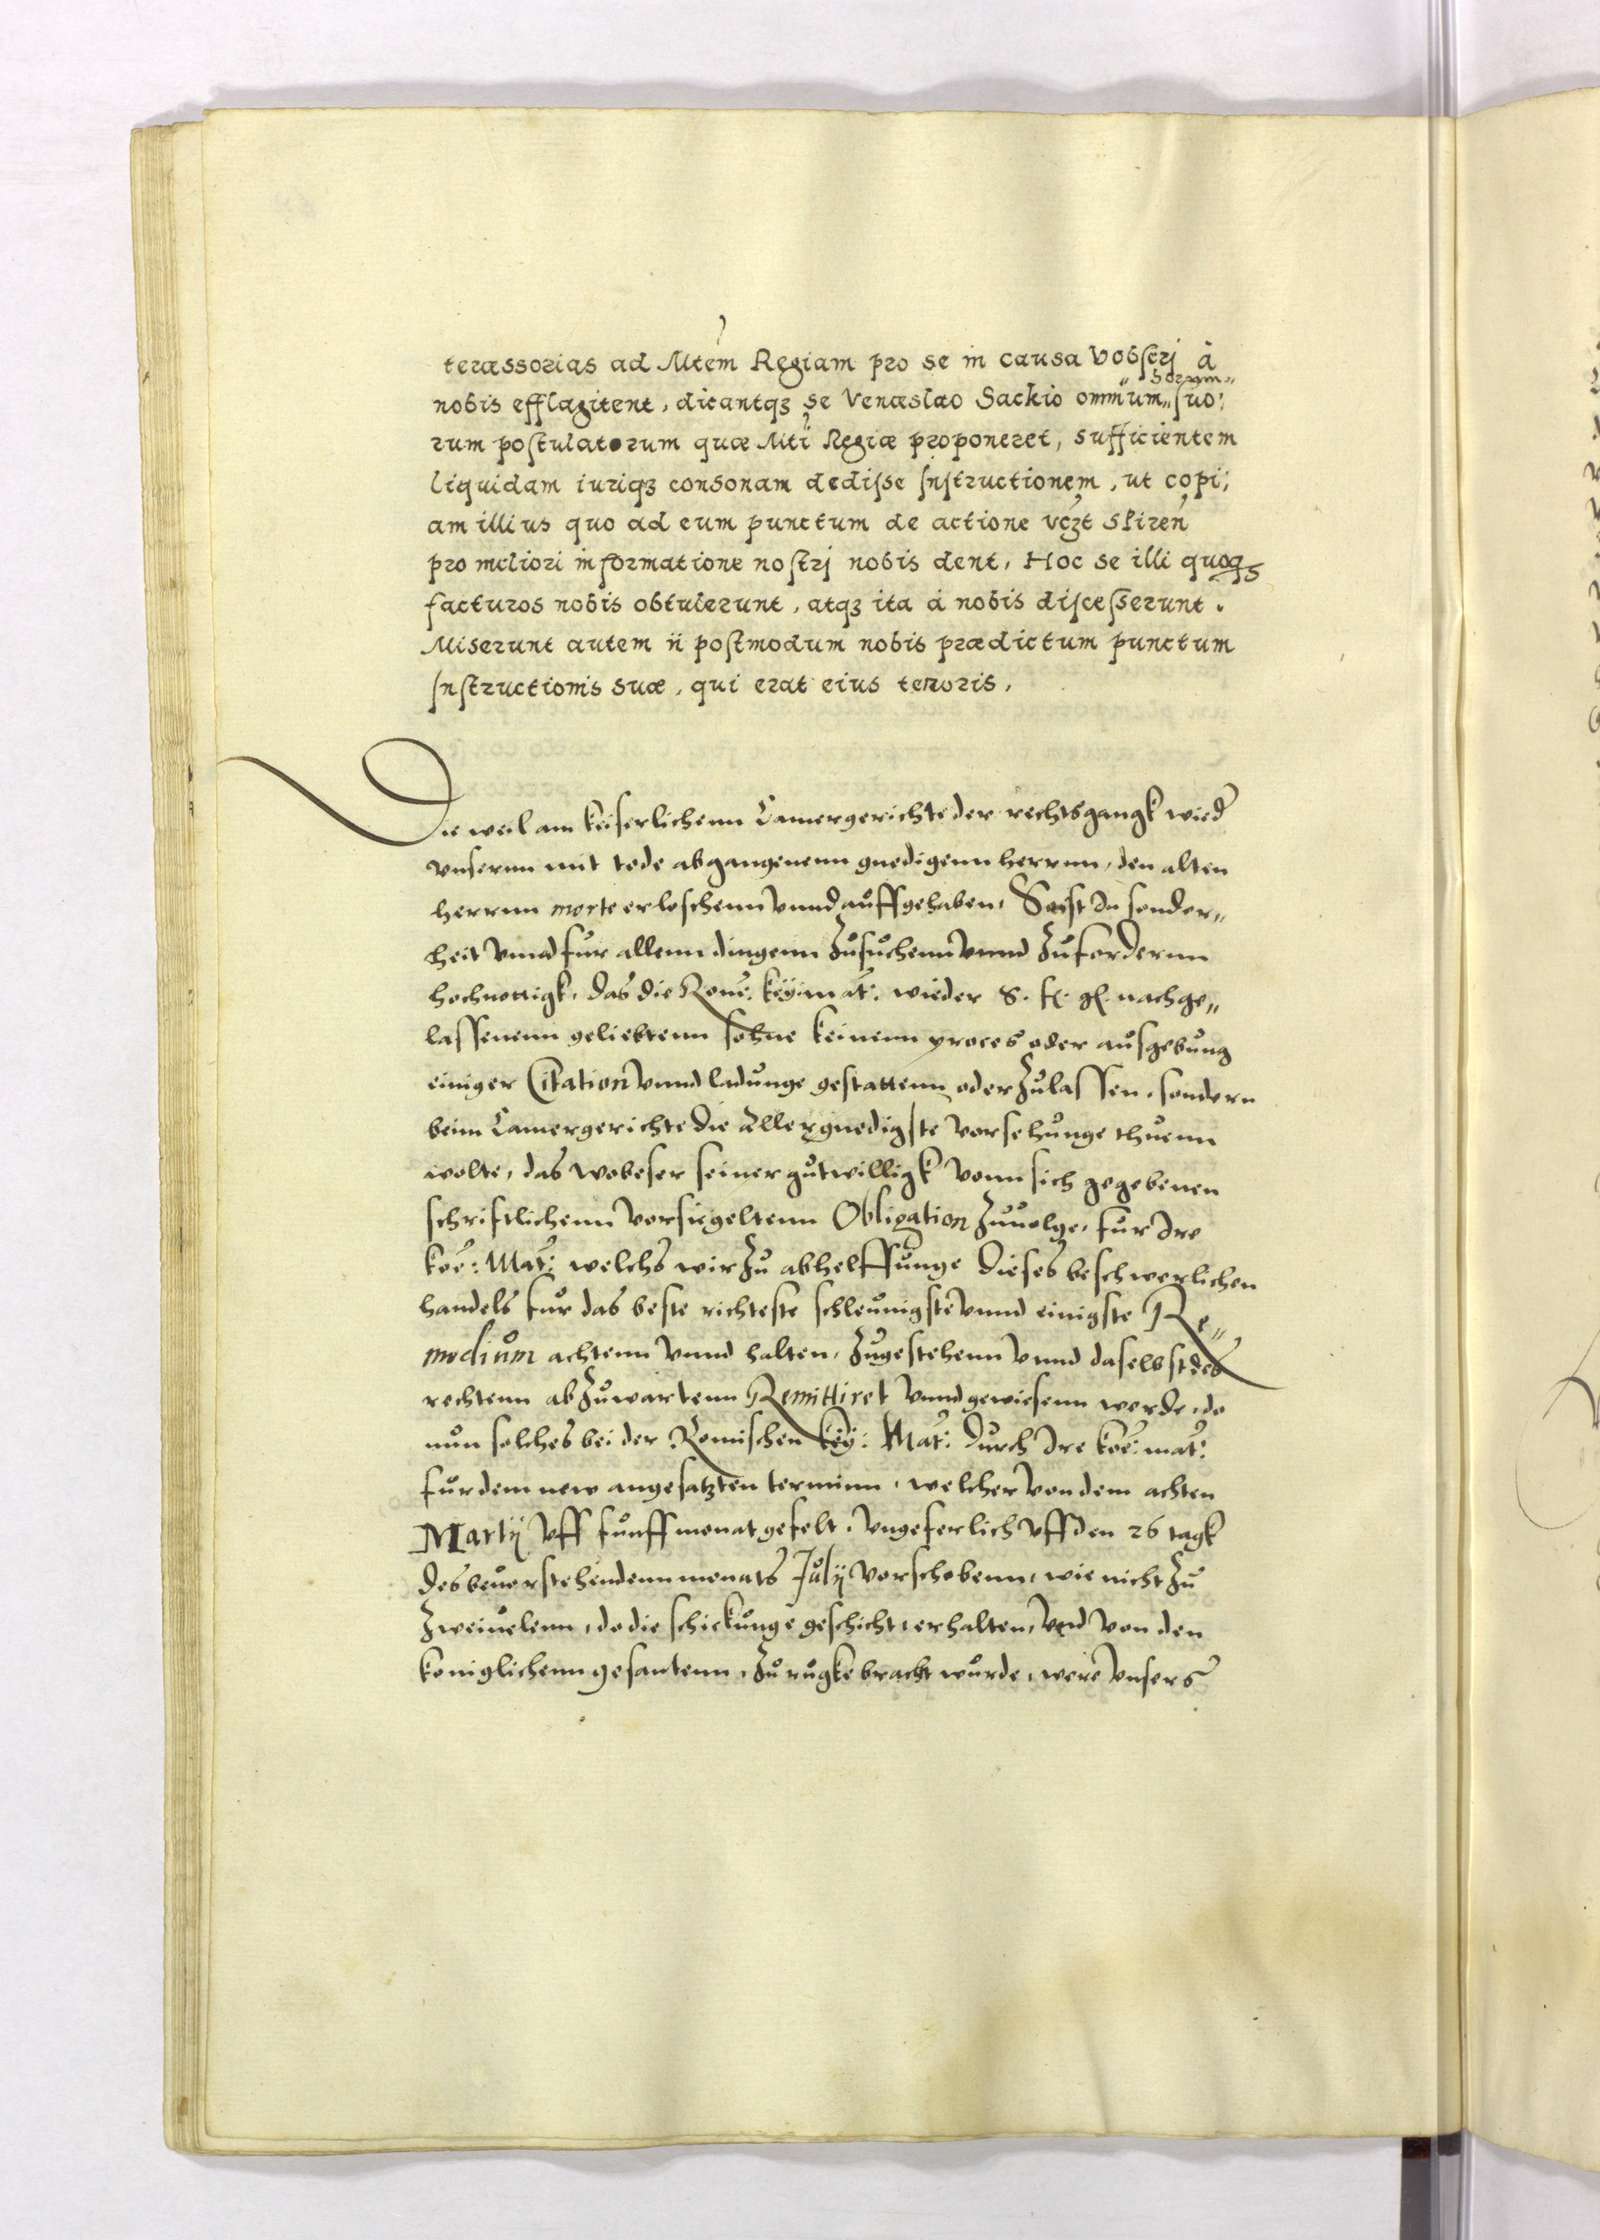 teræssorias ad Mtem Regiam pro se in causa Vobserj à
nobis efflagitent, dicantqꝫ se Venæslao Sackio omnium suo:
rum postulatorum quæ Mti Regiæ proponeret, sufficientem
liquidam iuriqꝫ consonam dedisse Instructionem, ut copi:
am illius quo ad eum punctum de actione vczt Spiren
pro meliori informatione nostrj nobis dent, Hoc se illi quoqꝫ
facturos nobis obtulerunt, atqꝫ ita à nobis discesserunt.
Miserunt autem ii postmodum nobis prædictum punctum
Instructionis suæ, qui erat eius tenoris,
Die weil am keiserlichenn Camergerichte der rechtsgangk wied
vnserm mit tode abgangenenn gnedigenn herrnn, den alten
herrnn morte erloschenn vnnd auffgehaben, So ist in sonder„
heit vnnd fur allenn dingenn zusuchenn vnnd zufordernn
hochnottigk, das die Rome: key: mat: wieder S. f. g. nachge„
lassenenn geliebtenn sohne keinenn proces oder ausgebung
einiger Citation vnnd ladunge gestattenn oder zulassen, sondern
beim Camergerichte die allergnedigste vorsehunge thuenn
wolte, das wobeser seiner gutwilligk vonn sich gegebenen
schriftlichenn vorsiegeltenn Obligation zuuolge, fur Ire
koe: Mat: welchs wir zu abhelffunge dieses beschwerlichen
handels fur das beste richteste schleunigste vnnd einigste Re„
medium achtenn vnnd halten, zugestehenn vnnd daselbst des
rechtenn abzuwartenn Remittiret vnnd gewiesenn werde, do
nun solches bei der Romischen key: Mat: durch Ire koe: mat:
fur dem new angesatzten terminn, welcher von dem achten
Martij vff funff monat gefelt, vngeferlich vff den 26 tagk
des beuorstehendenn monats July vorschobenn, wie nicht zu
zweiuelenn, do die schickunge geschicht, erhalten, vnd von den
koniglichenn gesantenn, zu rugke bracht wurde, were vnsers